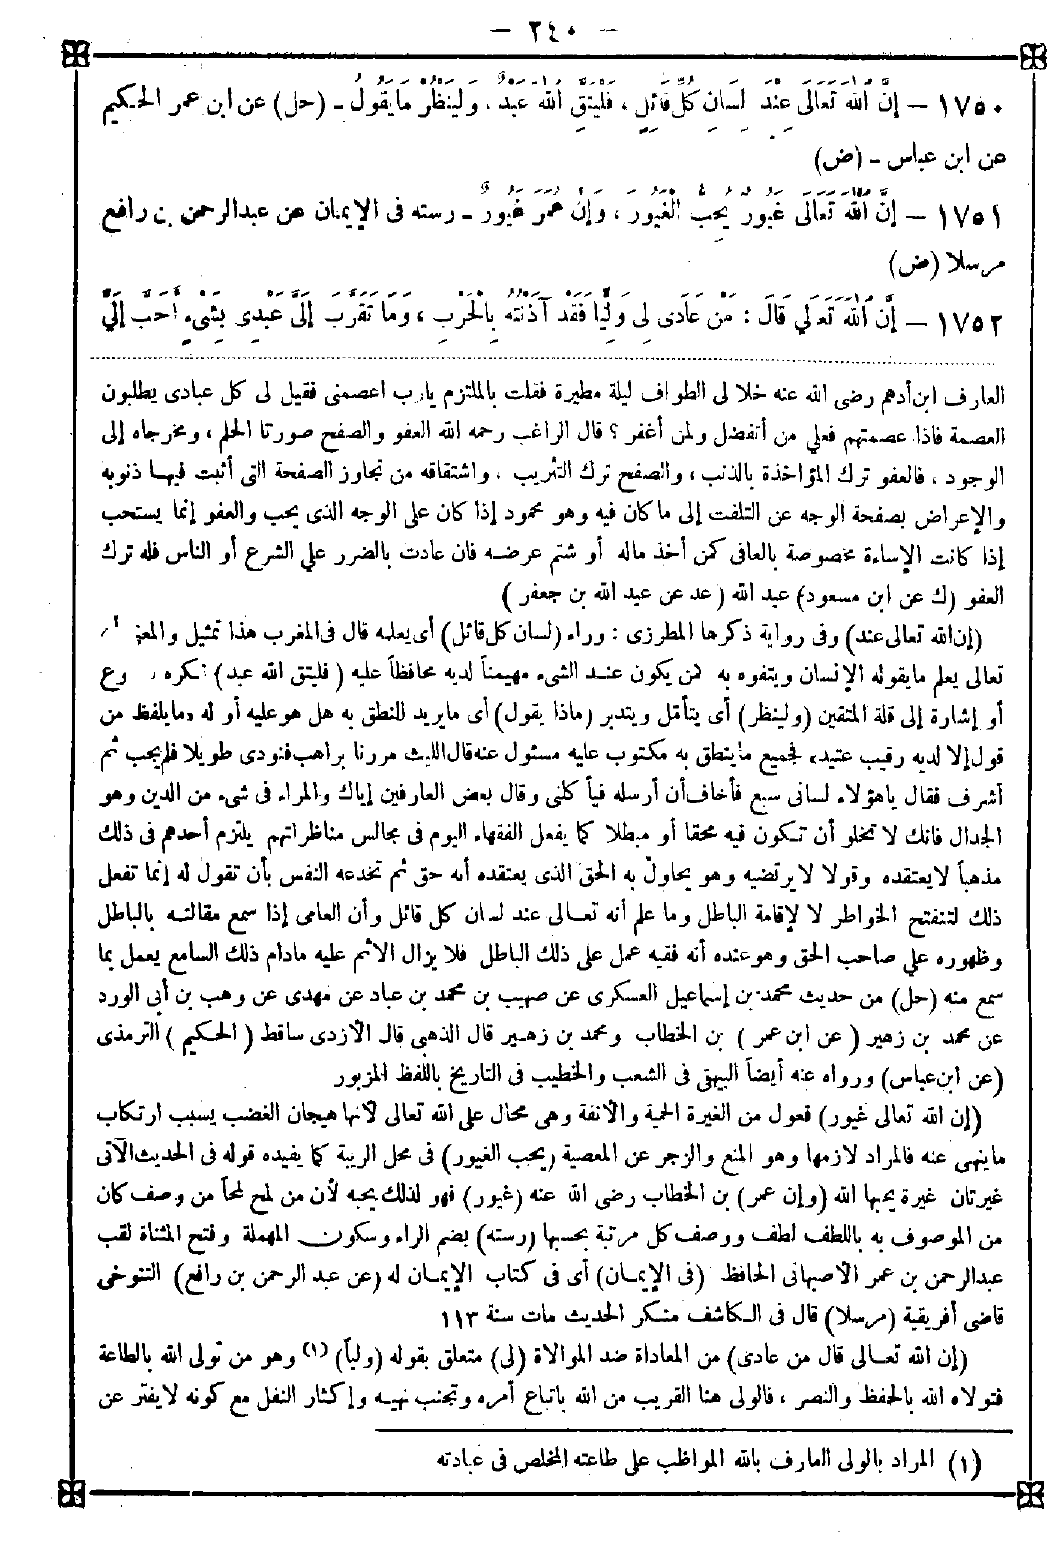 — ٢٤٠ —
١٧٥٠ — إِنَّ اللهَ تَعَالَى عِنْدَ لِسَانِ كُلِّ قَائِلٍ ، فَلْيَتَّقِ اللهَ عَبْدٌ ، وَلْيَنْظُرْ مَا يَقُولُ - (حل) عن ابن عمر الحكيم
عن ابن عباس - (ض)
١٧٥١ — إِنَّ اللهَ تَعَالَى غَيُورٌ يُحِبُّ الْغَيُورَ ، وَإِنَّ عُمَرَ غَيُورٌ - رسته فى الإيمان عن عبدالرحمن بن رافع
مرسلا (ض)
١٧٥٢ — إِنَّ اللهَ تَعَالَى قَالَ : مَنْ عَادَى لِى وَلِيًّا فَقَدْ آذَنْتُهُ بِالْحَرْبِ ، وَمَا تَقَرَّبَ إِلَىَّ عَبْدِى بِشَىْءٍ أَحَبَّ إِلَىَّ
العارف ابن أدهم رضى الله عنه خلا لى الطواف ليلة مطيرة فقلت بالملتزم يارب اعصمنى فقيل لى كل عبادى يطلبون
العصمة فاذا عصمتهم فعلي من أتفضل ولمن أغفر ؟ قال الراغب رحمه الله العفو والصفح صورتا الحلم ، ومخرجاه إلى
الوجود ، فالعفو ترك المؤاخذة بالذنب ، والصفح ترك التثريب ، واشتقاقه من تجاوز الصفحة التى أثبت فيها ذنوبه
والإعراض بصفحة الوجه عن التلفت إلى ما كان فيه وهو محمود إذا كان على الوجه الذى يحب والعفو إنما يستحب
إذا كانت الإساءة مخصوصة بالعافى كمن أخذ ماله أو شتم عرضه فان عادت بالضرر علي الشرع أو الناس فله ترك
العفو (ك عن ابن مسعود) عبد الله (عد عن عبد الله بن جعفر )
(إن الله تعالى عند) وفى رواية ذكرها المطرزى : وراء (لسان كل قائل) أى يعلمه قال فى المغرب هذا تمثيل والمعنى
تعالى يعلم مايقوله الإنسان ويتفوه به كمن يكون عند الشىء مهيمناً لديه محافظاً عليه (فليتق الله عبد)
أو إشارة إلى قلة المتقين (ولينظر) أى يتأمل ويتدبر (ماذا يقول) أى مايريد للنطق به هل هو عليه أو له «مايلفظ من
قول إلا لديه رقيب عتيد» لجميع ماينطق به مكتوب عليه مسئول عنه قال الليث مررنا براهب فنودى طويلا فلم يجب ثم
أشرف فقال ياهؤلاء لسانى سبع فأخاف أن أرسله فيأكلنى وقال بعض العارفين إياك والمراء فى شىء من الدين وهو
الجدال فانك لا تخلو أن تكون فيه محقا أو مبطلا كما يفعل الفقهاء اليوم فى مجالس مناظراتهم يلتزم أحدهم فى ذلك
مذهباً لايعتقده وقولا لايرتضيه وهو يحاول به الحق الذى يعتقده أنه حق ثم تخدعه النفس بأن تقول له إنما تفعل
ذلك لتنفتح الخواطر لا لإقامة الباطل وما علم أنه تعالى عند لسان كل قائل وأن العامى إذا سمع مقالته بالباطل
وظهوره علي صاحب الحق وهو عنده أنه فقيه عمل على ذلك الباطل فلا يزال الاثم عليه مادام ذلك السامع يعمل بما
سمع منه (حل) من حديث محمد بن إسماعيل العسكرى عن صهيب بن محمد بن عباد عن مهدى عن وهب بن أبى الورد
عن محمد بن زهير ( عن ابن عمر ) بن الخطاب ومحمد بن زهير قال الذهبى قال الأزدى ساقط (الحكيم ) الترمذى
(عن ابن عباس) ورواه عنه أيضاً البيهقى فى الشعب والخطيب فى التاريخ باللفظ المزبور
(إن الله تعالى غيور) فعول من الغيرة الحمية والانفة وهى محال على الله تعالى لأنها هيجان الغضب بسبب ارتكاب
ماينهى عنه فالمراد لازمها وهو المنع والزجر عن المعصية (يحب الغيور) فى محل الريبة كما يفيده قوله فى الحديث الآتى
غيرتان غيرة يحبها الله (وإن عمر) بن الخطاب رضى الله عنه (غيور) فهو لذلك يحبه لأن من لمح لمحاً من وصف كان
من الموصوف به باللطف لطف ووصف كل مرتبة بحسبها (رسته) بضم الراء وسكون المهملة وفتح المثناة لقب
عبدالرحمن بن عمر الأصبهانى الحافظ (فى الإيمان) أى فى كتاب الإيمان له (عن عبد الرحمن بن رافع) التنوخى
قاضى أفريقية (مرسلا) قال فى الكاشف منكر الحديث مات سنة ١١٣
(إن الله تعالى قال من عادى) من المعاداة ضد الموالاة (لى) متعلق بقوله (ولياً) (١) وهو من تولى الله بالطاعة
فتولاه الله بالحفظ والنصر ، فالولى هنا القريب من الله باتباع أمره وتجنب نهيه وإكثار النفل مع كونه لايفتر عن
(١) المراد بالولى العارف بالله المواظب على طاعته المخلص فى عبادته